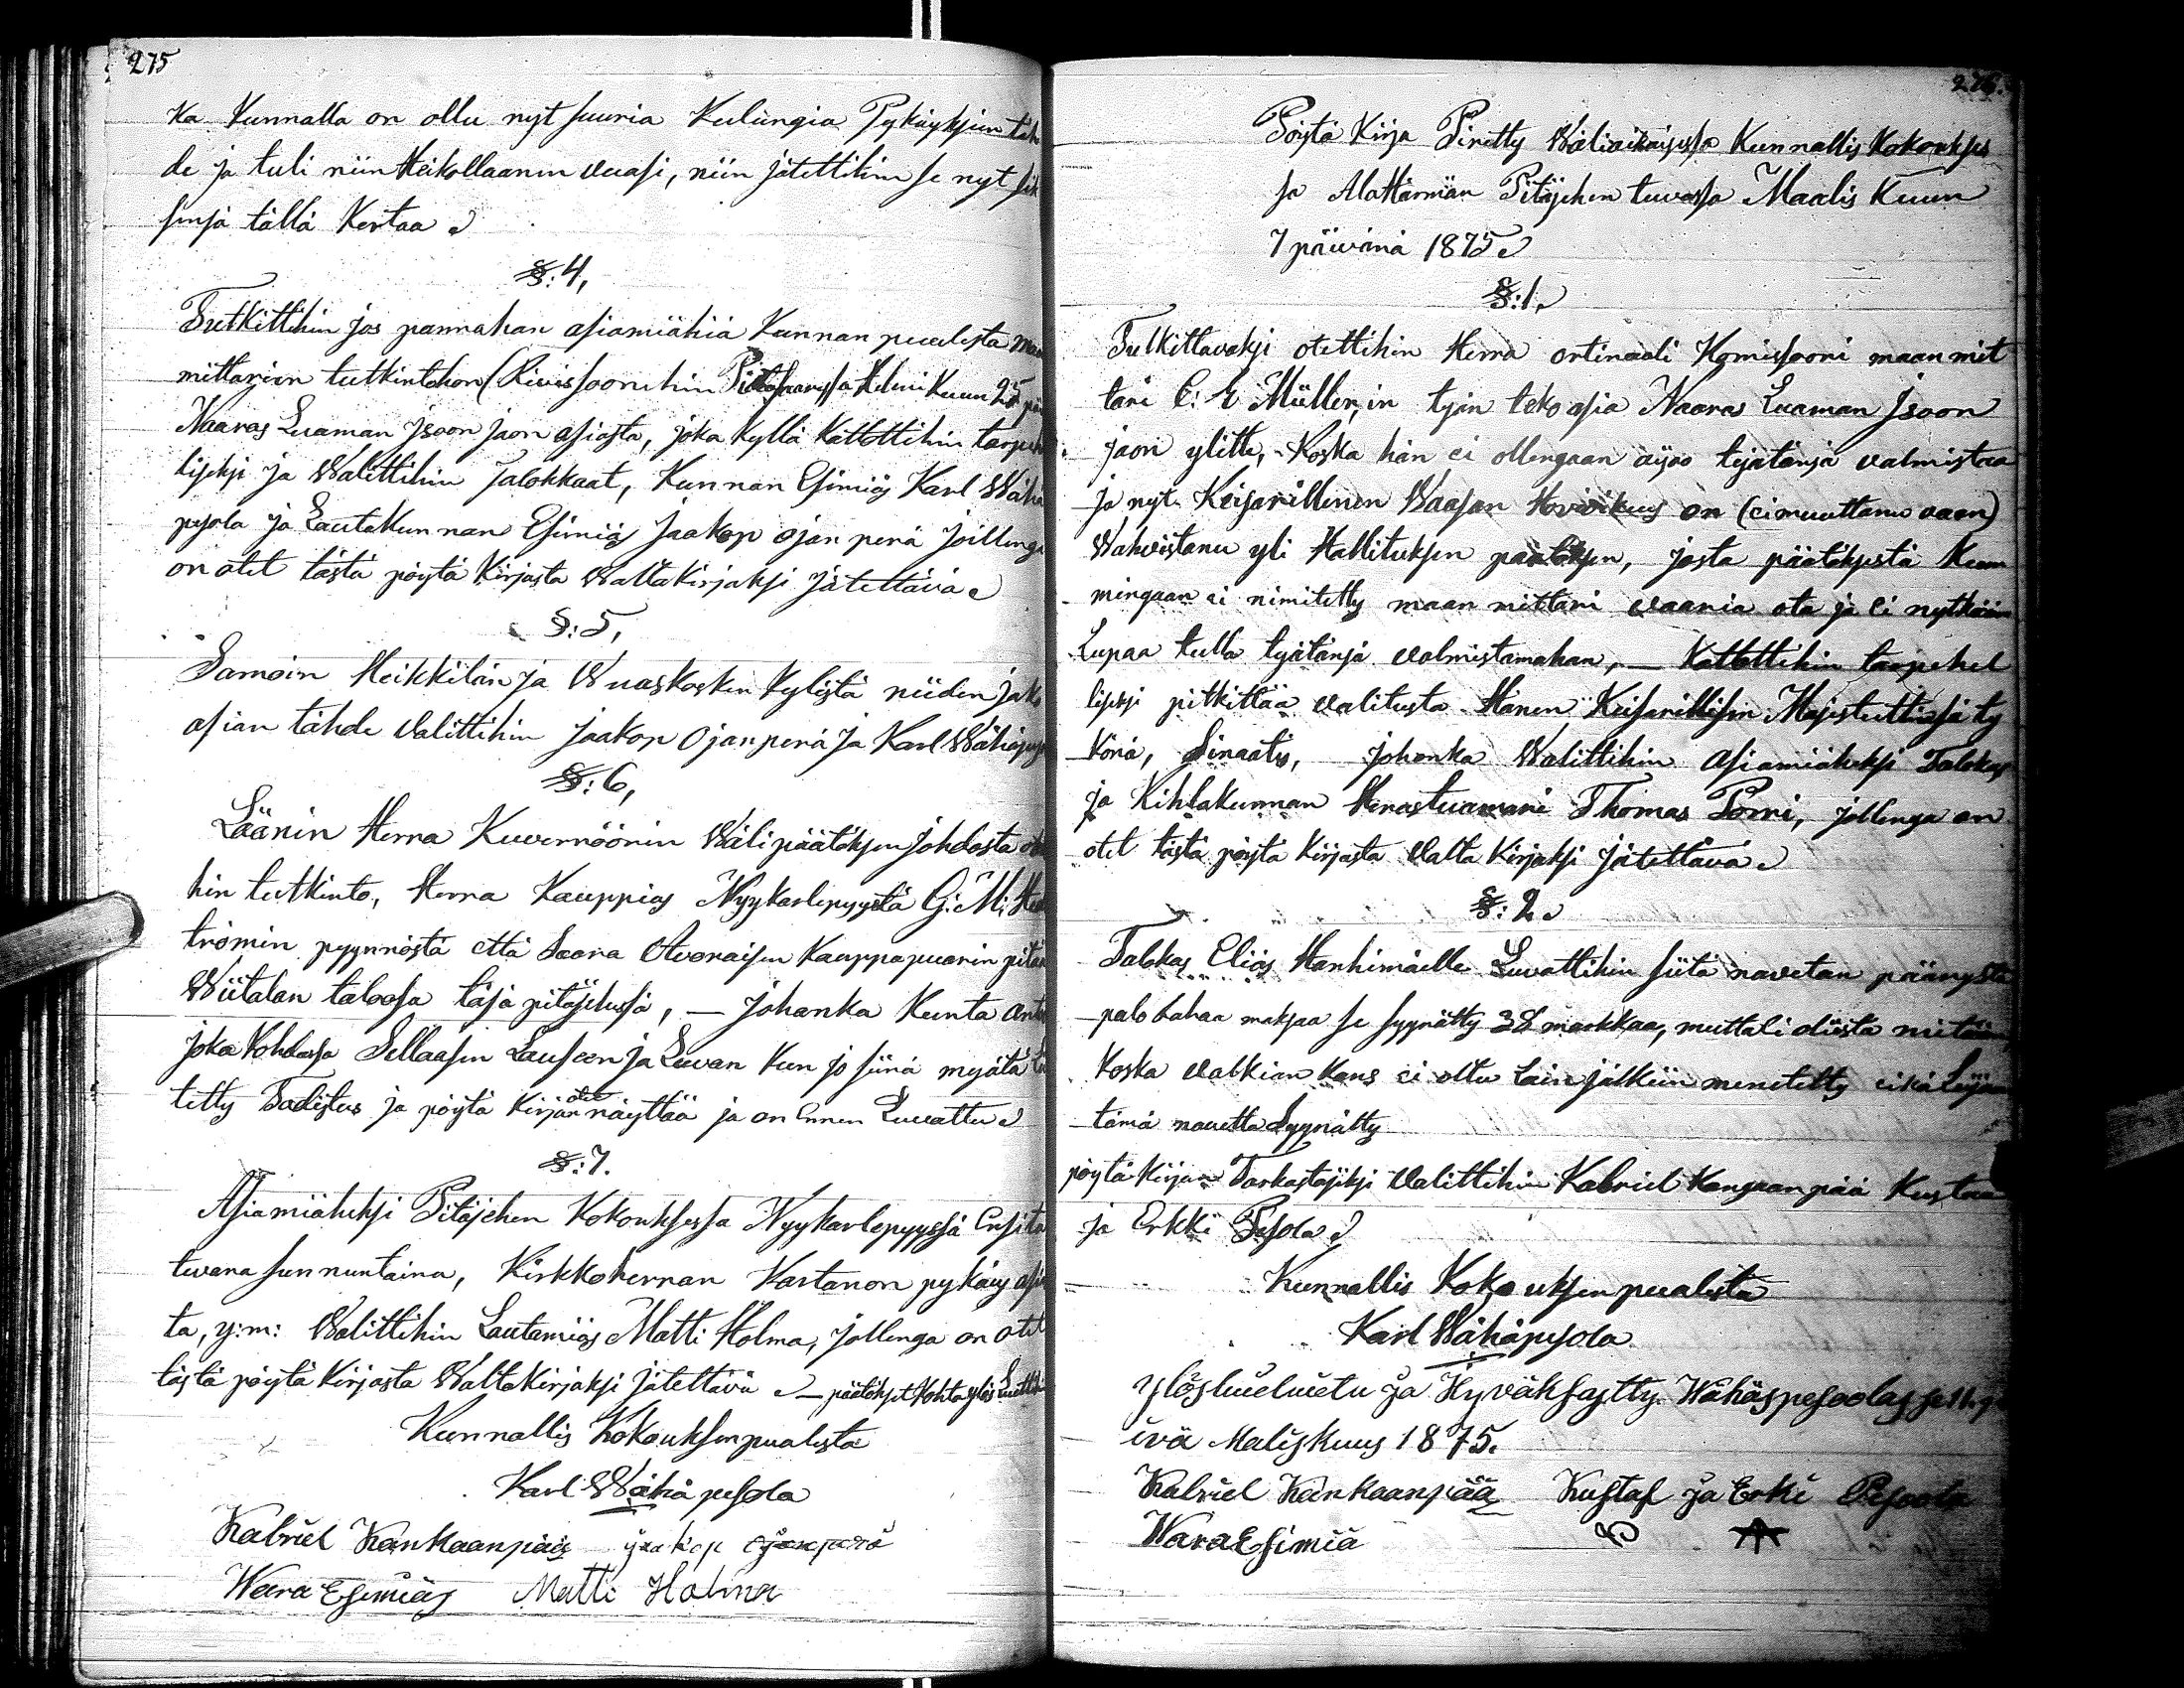 275
ka Kunnalla on ollu nyt suuria Kulungia Pykäyksiin täh
de ja tuli niin Heikollaanen vuasi, niin jätettihin se nyt sik
sensä tällä Kertaa
§:4,
Tutkittihin jos pannahan asiamiähiä Kunnan puolesta maan
mittarien tutkintohon (Rivissoonihin Pietarsaaressa Helmi Kuun 25 päi
Naaras Luaman Jsoon jaon asiasta, joka kyllä kattottihin tarpeh
liseksi ja Walittihin Talokkaat, Kunnan Esimiäs Karl Wähä
pesola ja Lautakunnan Esimiäs Jaakop Ojan perä joillenga
on otet tästä pöytä Kirjasta Waltakirjaksi jätettävä
§:5,
Samoin Heikkilän ja Wuaskosken kylistä niiden jako
asian tähde Valittihin Jaakop Ojanperä ja Karl Wähäpeso
§:6,
Läänin Herra Kuvernöörin Wälipäätöksen johdosta ote
hin tutkinto, Herra Kauppias Nyykarlepyystä G: M:
trömin pyynnöstä että Saara Avoraisen Kauppapuarin pitä
Wiitalan taloosa täsä pitäjehesä, — johonka Kunta anta
joka kohdassa Sellaasen Lauseen ja Luvan kun jo siinä myätä
tetty Todistus ja pöytä Kirjan otet näyttää ja on Ennen Luvattu
§:7.
Asiamiäheksi Pitäjehen Kokouksessa Nyykarlepyyssä Ensi ta
tuvana sunnuntaina, Kirkkoherran Kartanon pykäys asi
ta, y:m: Walittihin Lautamiäs Matti Holma, jollenga on otet
tästä pöytä Kirjasta Waltakirjaksi jätettävä — päätökset Kohta ylös Luettihi
Kunnallis Kokouksen puolesta
Karl Wähä pesola
Kabriel Kankaanpää Jaakop Ojanperä
Wara Esimiäs Matti Holma
276.
Pöytä Kirja Piretty Wäliaikaisessa Kunnallis Kokoukses
sa Alahärmän Pitäjehen tuvassa Maalis Kuun
7 päivänä 1875
§:1.
Tutkittavaksi otettihin Herra ortinaali Komissooni maan mit
tari C: E Müller,in työn teko asia Naaras Luaman Jsoon
jaon ylitte, Koska hän ei ollengaan aijoo työtänsä valmistaa
ja nyt Keisarillinen Waasan Hovioikeus on (ei muuttanu vaan)
Wahvistanu yli Hallituksen päätöksen, josta päätöksestä Kum
mingaan ei nimitetty maan mittari vaaria ota ja ei nytkään
Lupaa tulla työtänsä valmistamahan, — Kattottihin tarpehel
liseksi pitkittää valitusta Hänen Keisarillisen Majesteettinsä ty
könä, Sinaatis, johonka Walittihin Asiamiäheksi Talokas
ja Kihlakunnan Herastuamari Thomas Porri, jollenga on
otet tästä pöytä kirjasta Valta Kirjaksi jätettävä
§:2
Talokas Elias Hanhimäelle Luvattihin siitä navetan päänystä
palo bahaa maksaa se syynätty 38 markkaa, mutta ei oljista mitään
koska valkian kans ei oltu Lain jälkiin menetetty eikä Lujan
tämä navetta Syynätty
pöytä Kirjan Tarkastajiksi Valittihin Kabriel Kangaanpää Kustaa
ja Erkki Pesola
Kunnallis Kokouksen puolesta
Karl Wähäpesola
Ylöslueluetu ja Hyväksytty Wähäspesoolas se 11. p
ivä Maliskuus 1875.
Kabriel Kankaanpää Kustaf ja Erki Pesoola
Wara Esimiä